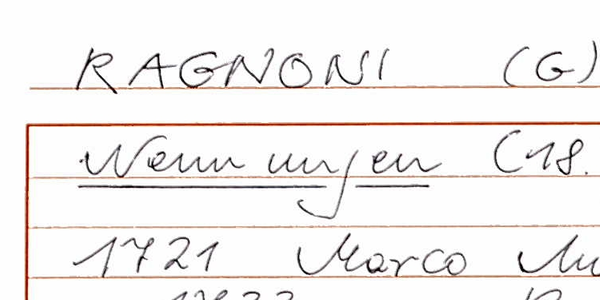 RAGNONI (G)
Nennungen (18.
1721 Marco